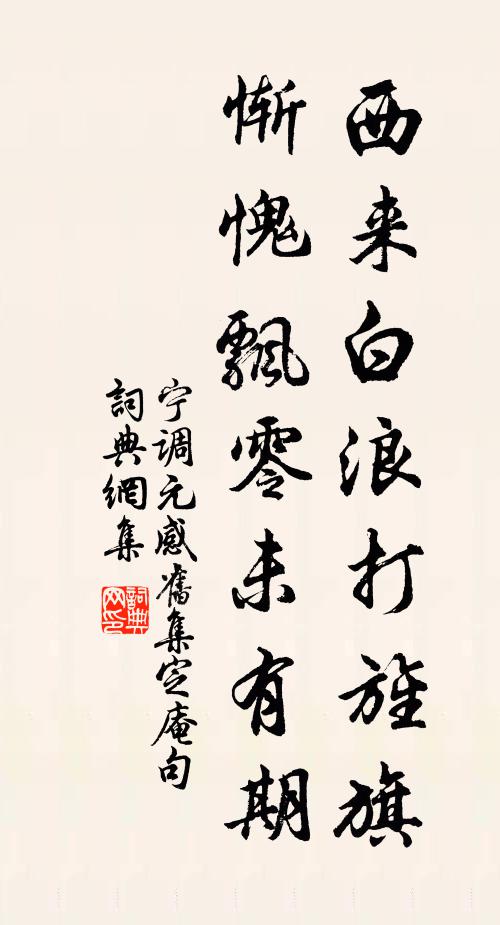 西来白浪打旌旗
惭愧飘零未有期
宁调元感舊集定庵句
詞典網集
詞典网印